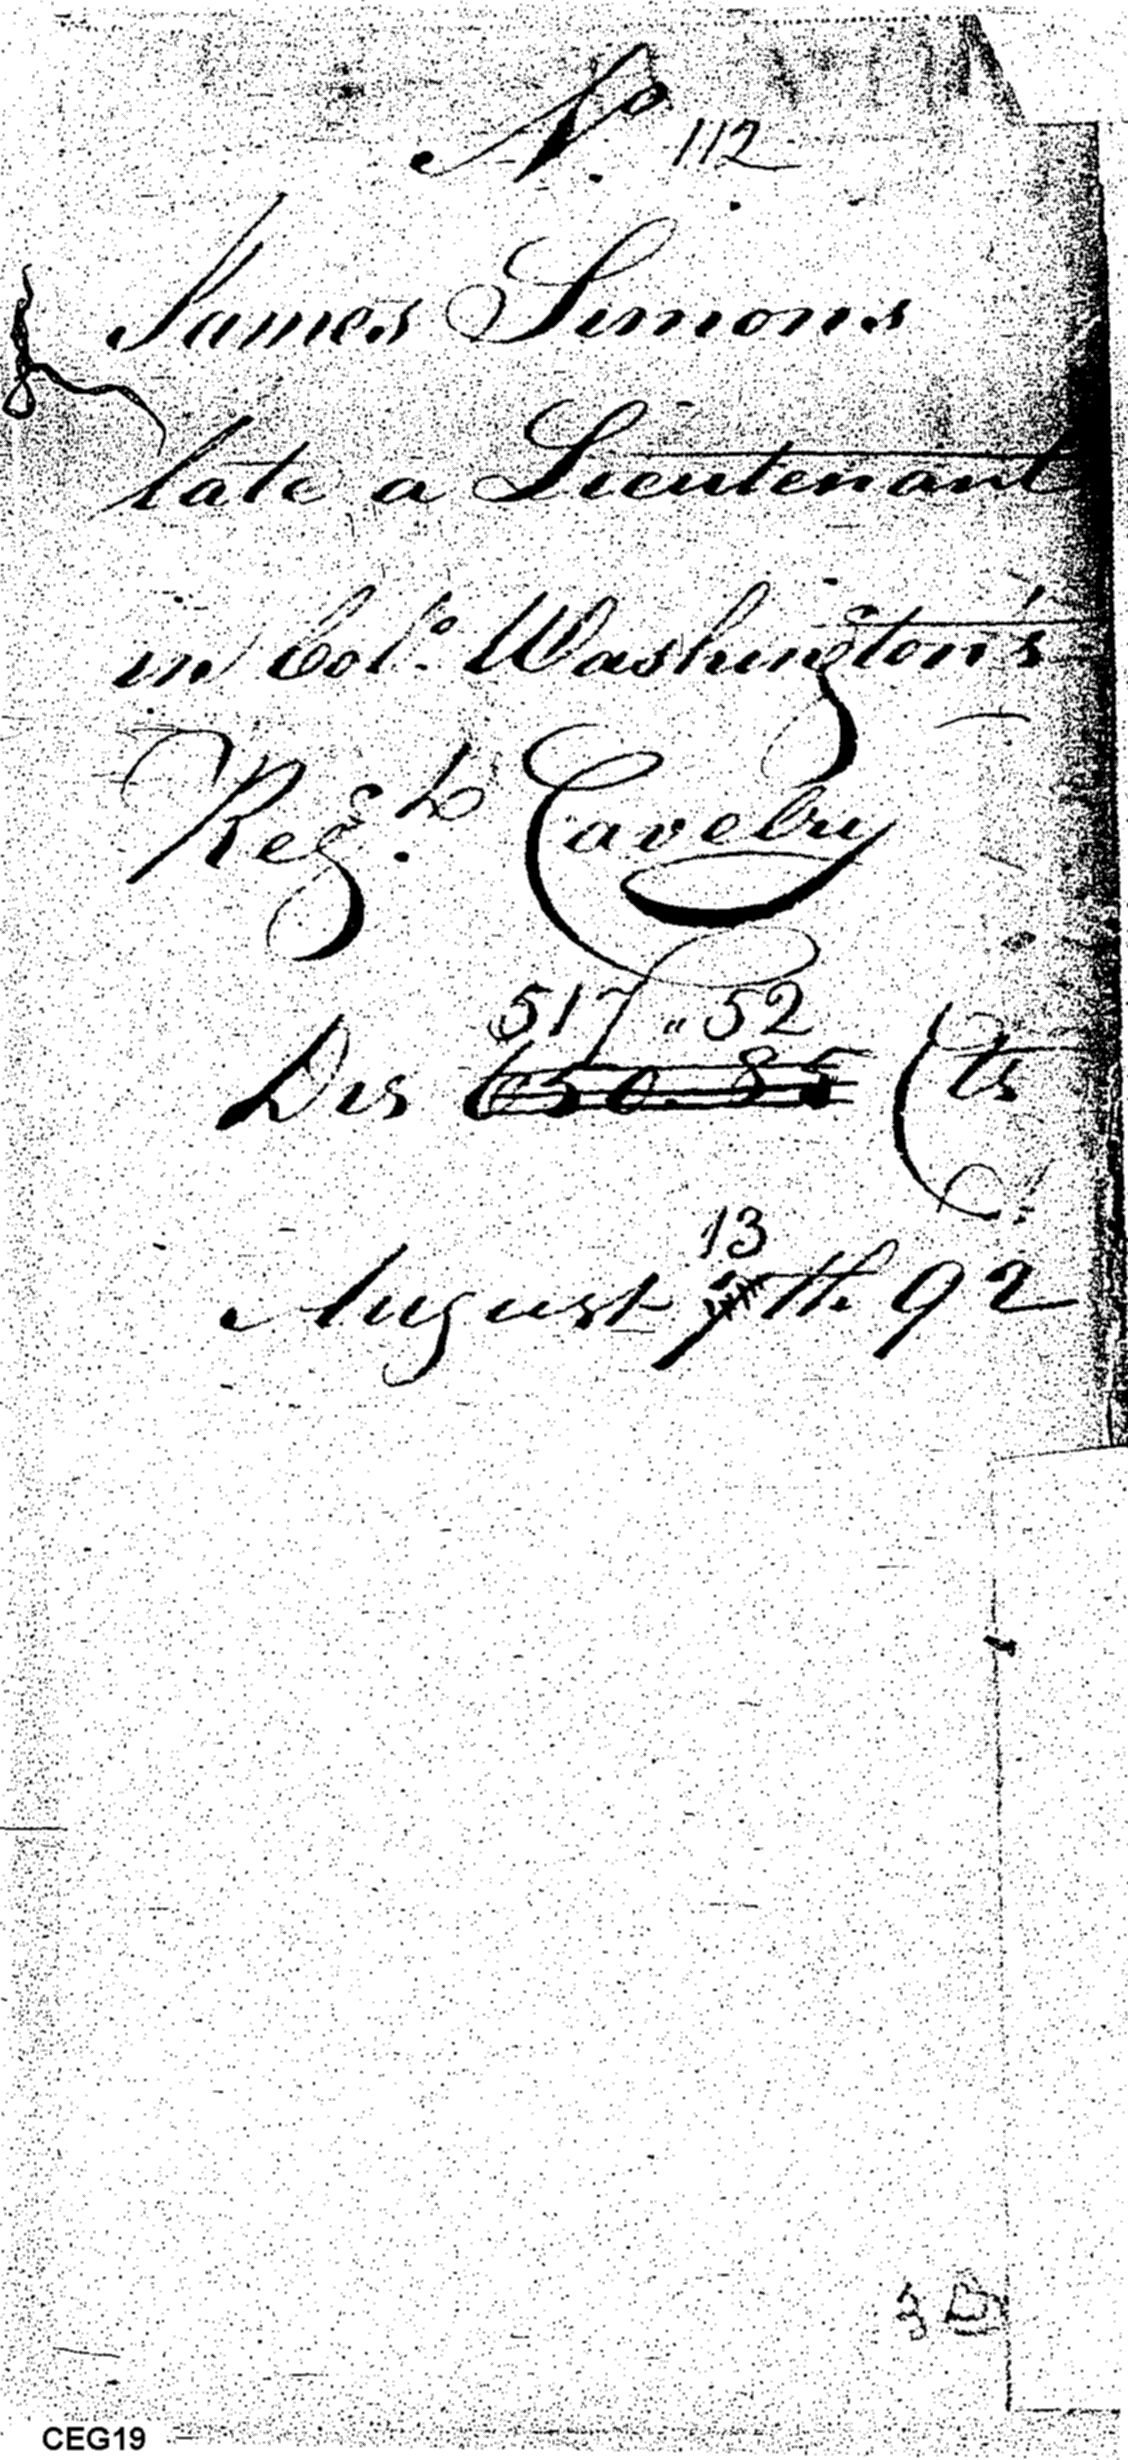 No. 112
James Simons
late a Lieutenant
in Colo. Washington's
Regt. Cavelry
517 " 52
Drs 650.85 Cts
13
August th. 92
CEG19